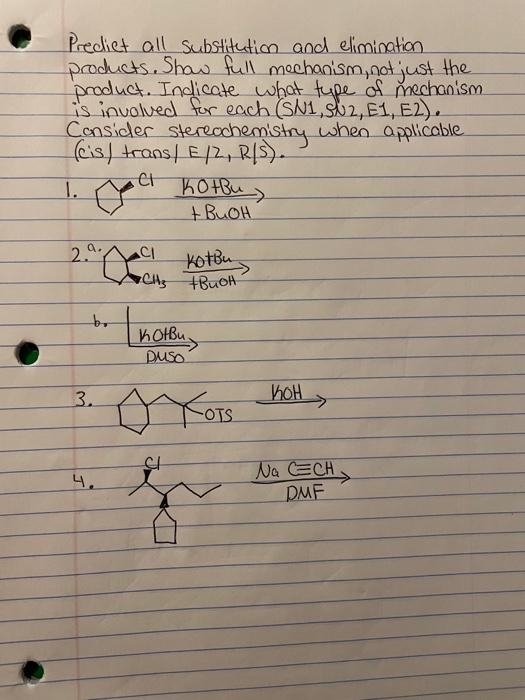 Predict all substitution and elimination
products. Show full mechanism, not just the
product. Indicate what type of mechanism
is involved for each (SN1, SN2, E1, E2).
Consider stereochemistry when applicable
(cis/trans/E/Z, R/S).
1. Cl KOtBu
tBuOH
2. a. Cl KOtBu
CH3 tBuOH
b. KOtBu
DMSO
3. OTS KOH
4. Cl Na C≡CH
DMF